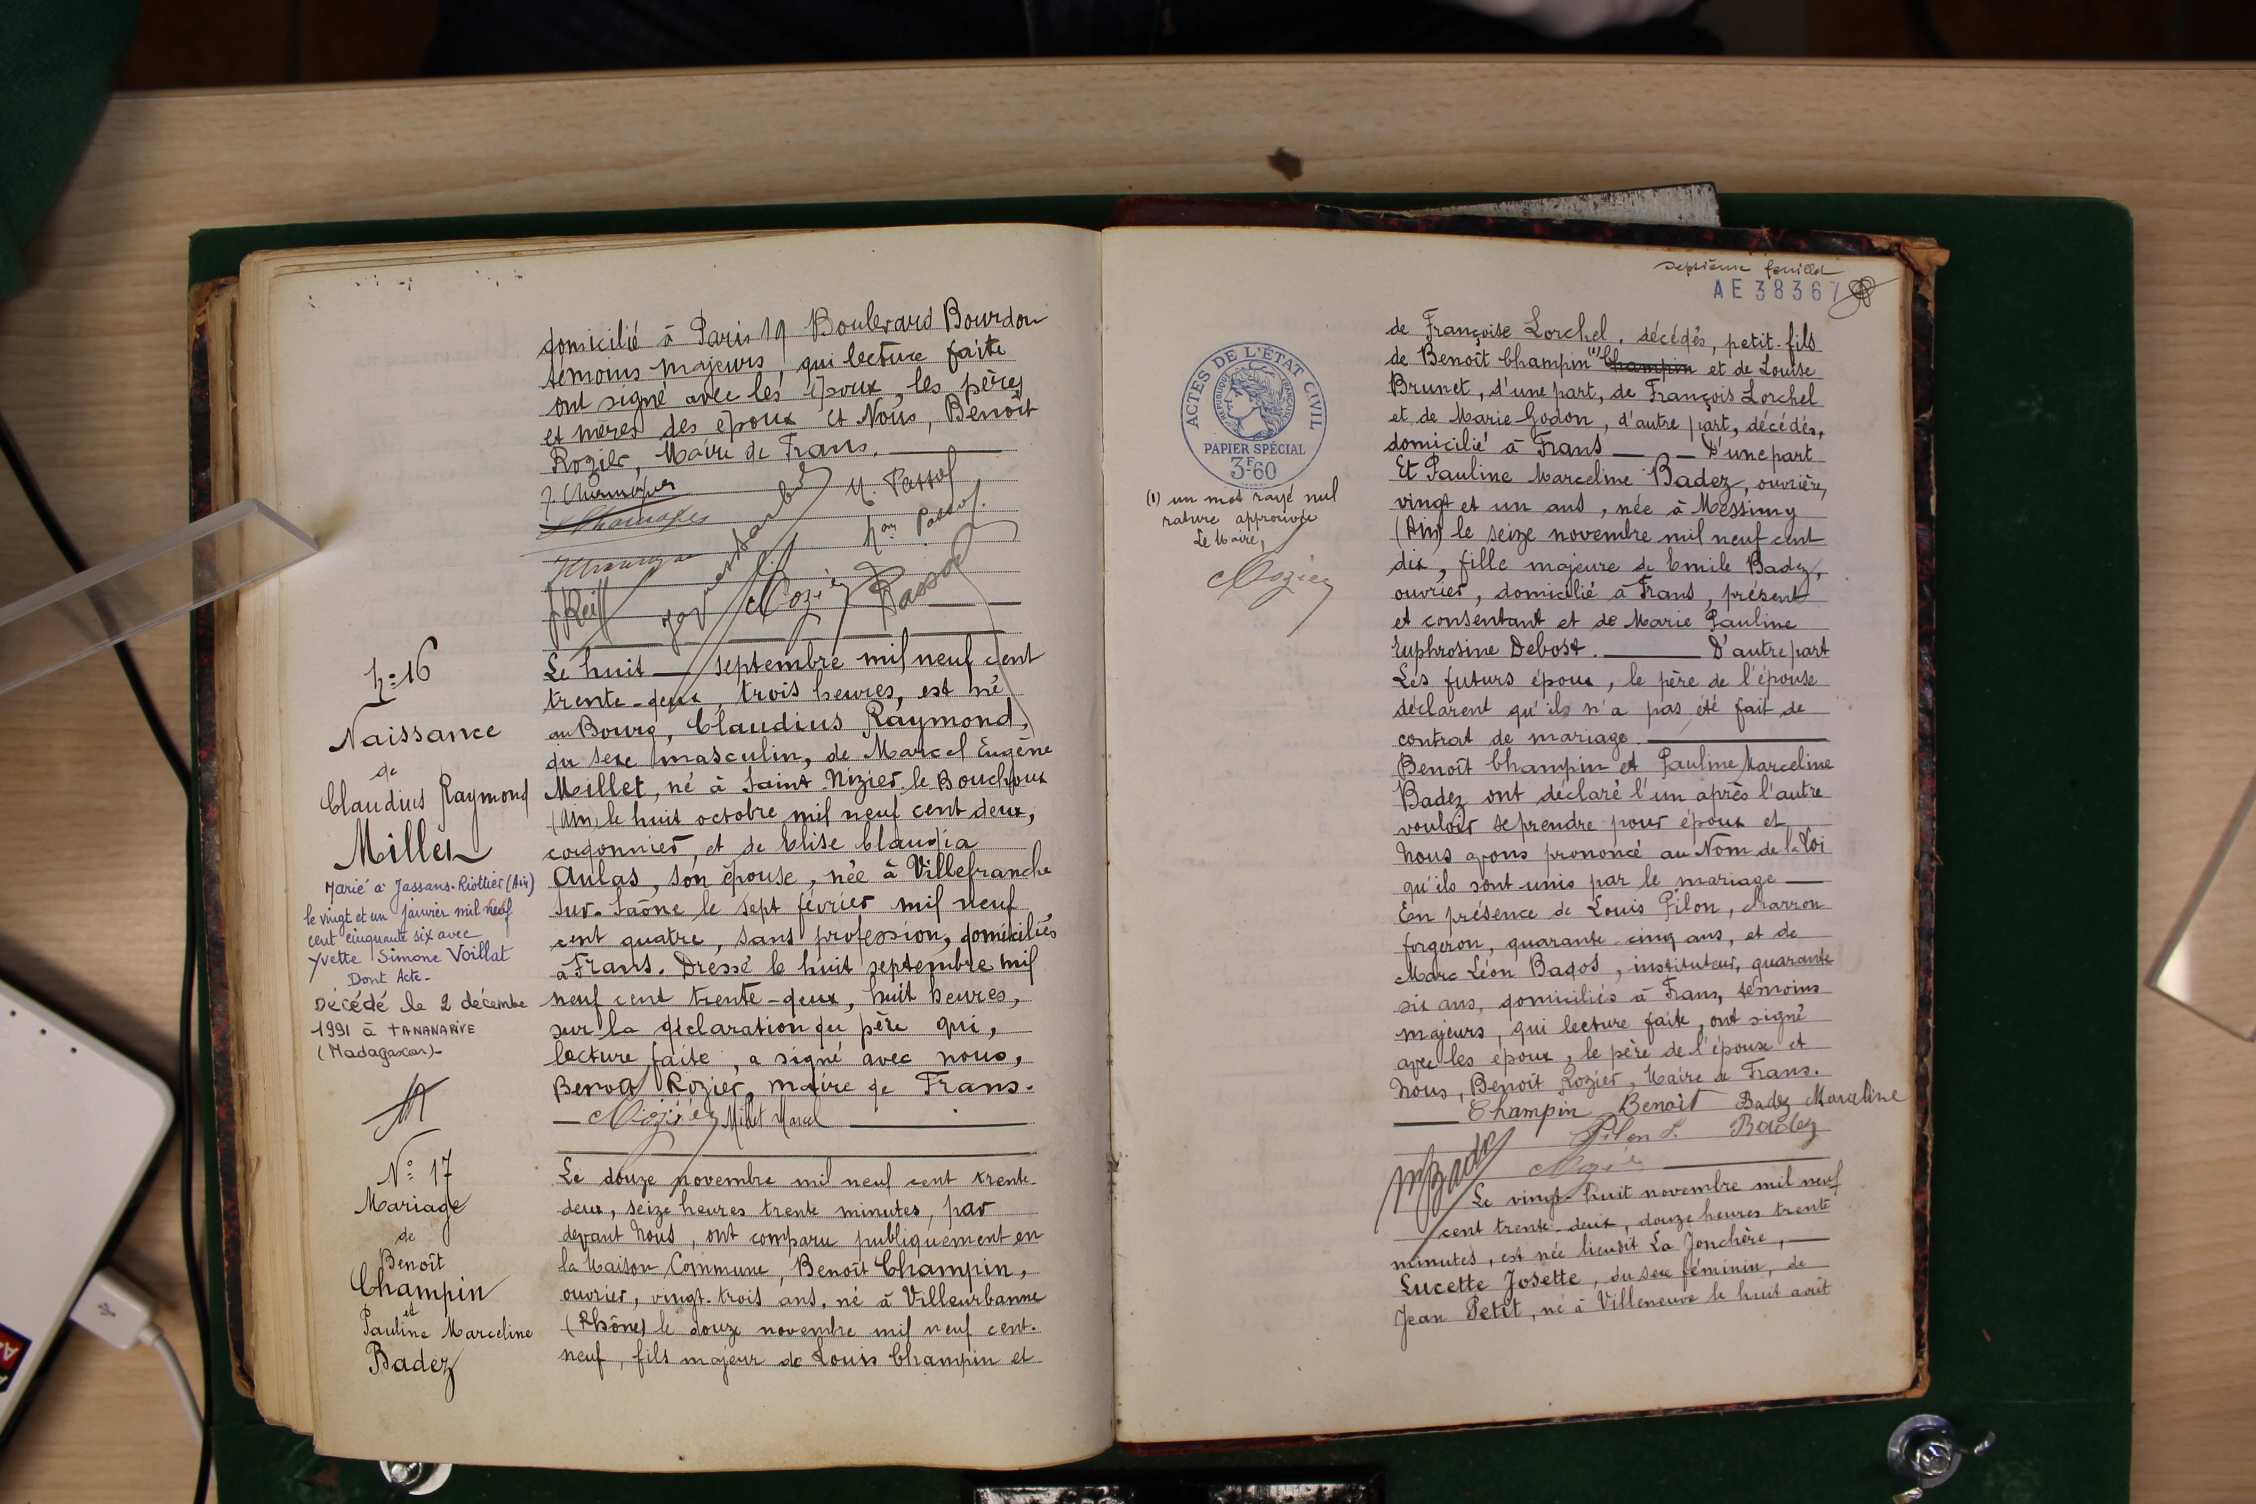 domicilié à Paris 19 Boulevard Bourdon
témoins majeurs, qui lecture faite
ont signé avec les époux, les pères
et mères des époux et Nous, Benoît
Rozier, Maire de Frans.
M. Passot
Passot.
Rozier Passot
h:16
Naissance
de
Claudius Raymond
Millet
Marié à Jassans-Riottier (Ain)
le vingt et un janvier mil neuf
cent cinquante six avec
Yvette Simone Voillat
Dont Acte-
Décédé le 2 décembre
1991 à TANANARIVE
(Madagascar)-
Le huit septembre mil neuf cent
trente-deux, trois heures, est né
au Bourg, Claudius Raymond,
du sexe masculin, de Marcel Eugène
Meillet, né à Saint-Nizier-le Bouchoux
(Ain) le huit octobre mil neuf cent deux,
cordonnier, et de Elise Claudia
Aulas, son épouse, née à Villefranche
sur-Saône le sept février mil neuf
cent quatre, sans profession, domiciliés
à Frans. Dressé le huit septembre mil
neuf cent trente-deux, huit heures,
sur la déclaration du père qui,
lecture faite, a signé avec nous,
Benoît Rozier, maire de Frans.
Rozier Millet Marcel
N° 17
Mariage
de
Benoît
Champin
et
Pauline Marceline
Badez
Le douze novembre mil neuf cent trente-
deux, seize heures trente minutes, par
devant Nous, ont comparu publiquement en
la Maison Commune, Benoît Champin,
ouvrier, vingt-trois ans, né à Villeurbanne
(Rhône) le douze novembre mil neuf cent-
neuf, fils majeur de Louis Champin et
septième feuillet
AE38367
ACTES DE L'ÉTAT CIVIL
RÉPUBLIQUE FRANÇAISE
PAPIER SPÉCIAL
3F60
(1) un mot rayé nul
rature approuvée
Le Maire,
Rozier
de Françoise Lorchel, décédés, petit-fils
de Benoît Champin (1) Champin et de Louise
Brunet, d'une part, de François Lorchel
et de Marie Godon, d'autre part, décédés,
domicilié à Frans — D'une part
Et Pauline Marceline Badez, ouvrière,
vingt et un ans, née à Messimy
(Ain) le seize novembre mil neuf cent
dix, fille majeure de Emile Badez,
ouvrier, domicilié à Frans, présent
et consentant et de Marie Pauline
Euphrosine Debost. — D'autre part
Les futurs époux, le père de l'épouse
déclarent qu'il n'a pas été fait de
contrat de mariage
Benoît Champin et Pauline Marceline
Badez ont déclaré l'un après l'autre
vouloir se prendre pour époux et
Nous avons prononcé au Nom de la Loi
qu'ils sont unis par le mariage —
En présence de Louis Pilon, charron
forgeron, quarante-cinq ans, et de
Marc Léon Bados, instituteur, quarante
six ans, domiciliés à Frans, témoins
majeurs, qui lecture faite, ont signé
avec les époux, le père de l'épouse et
Nous, Benoît Rozier, Maire de Frans.
Champin Benoît Badez Marceline
Pilon L. Badez
Rozier
Le vingt-huit novembre mil neuf
cent trente-deux, douze heures trente
minutes, est née lieudit La Jonchère, —
Lucette Josette, du sexe féminin, de
Jean Petit, né à Villeneuve le huit août